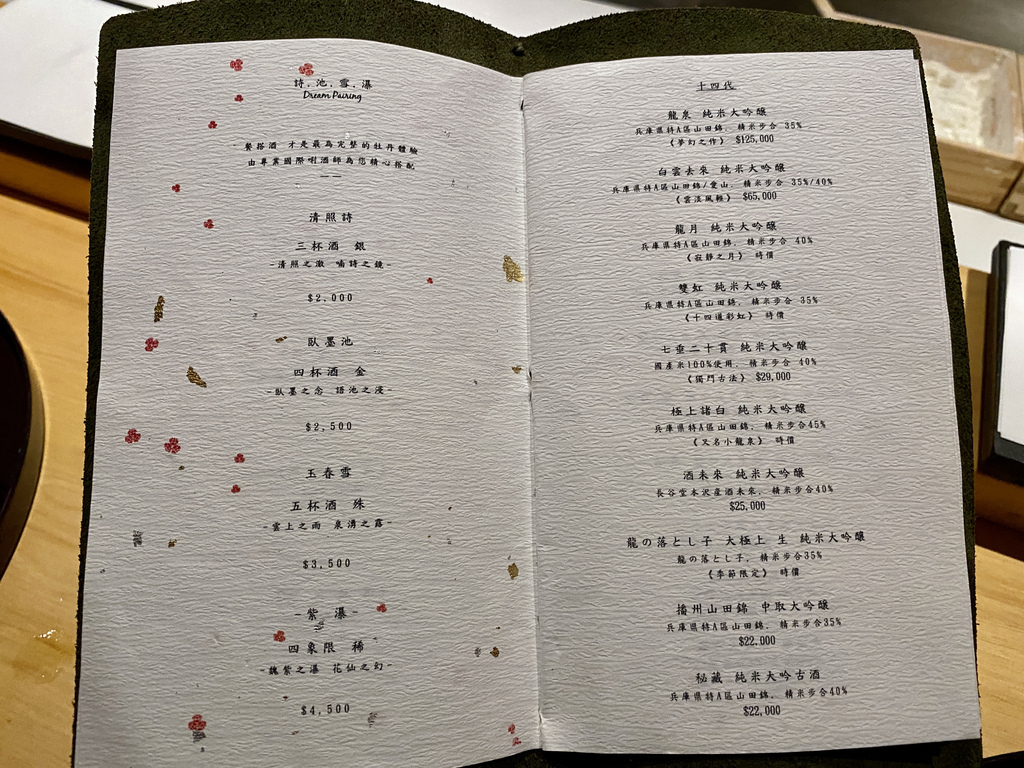 詩．池．雪．瀑
Dream Pairing
餐搭酒 才是最為完整的牡丹體驗
由專業國際唎酒師為您精心搭配
——
清照詩
三杯酒 銀
-清照之澈 喃詩之鏡-
$2,000
臥墨池
四杯酒 金
-臥墨之念 語池之漫-
$2,500
玉春雪
五杯酒 殊
-雲上之雨 泉湧之露-
$3,500
-紫 瀑-
四象限 稀
-魏紫之瀑 花仙之幻-
$4,500
十四代
龍泉 純米大吟釀
兵庫県特A區山田錦．精米步合 35%
《夢幻之作》 $125,000
白雲去來 純米大吟釀
兵庫県特A區山田錦/愛山．精米步合 35%/40%
《雲淡風輕》 $65,000
龍月 純米大吟釀
兵庫県特A區山田錦．精米步合 40%
《寂靜之月》 時價
雙虹 純米大吟釀
兵庫県特A區山田錦．精米步合 35%
《十四道彩虹》 時價
七垂二十貫 純米大吟釀
國產米100%使用．精米步合 40%
《獨門古法》 $29,000
極上諸白 純米大吟釀
兵庫県特A區山田錦．精米步合45%
《又名小龍泉》 時價
酒未來 純米大吟釀
長谷堂本沢産酒未來．精米步合40%
$25,000
龍の落とし子 大極上 生 純米大吟釀
龍の落とし子．精米步合35%
《季節限定》 時價
播州山田錦 中取大吟釀
兵庫県特A區山田錦．精米步合35%
$22.000
秘藏 純米大吟古酒
兵庫県特A區山田錦．精米步合40%
$22,000